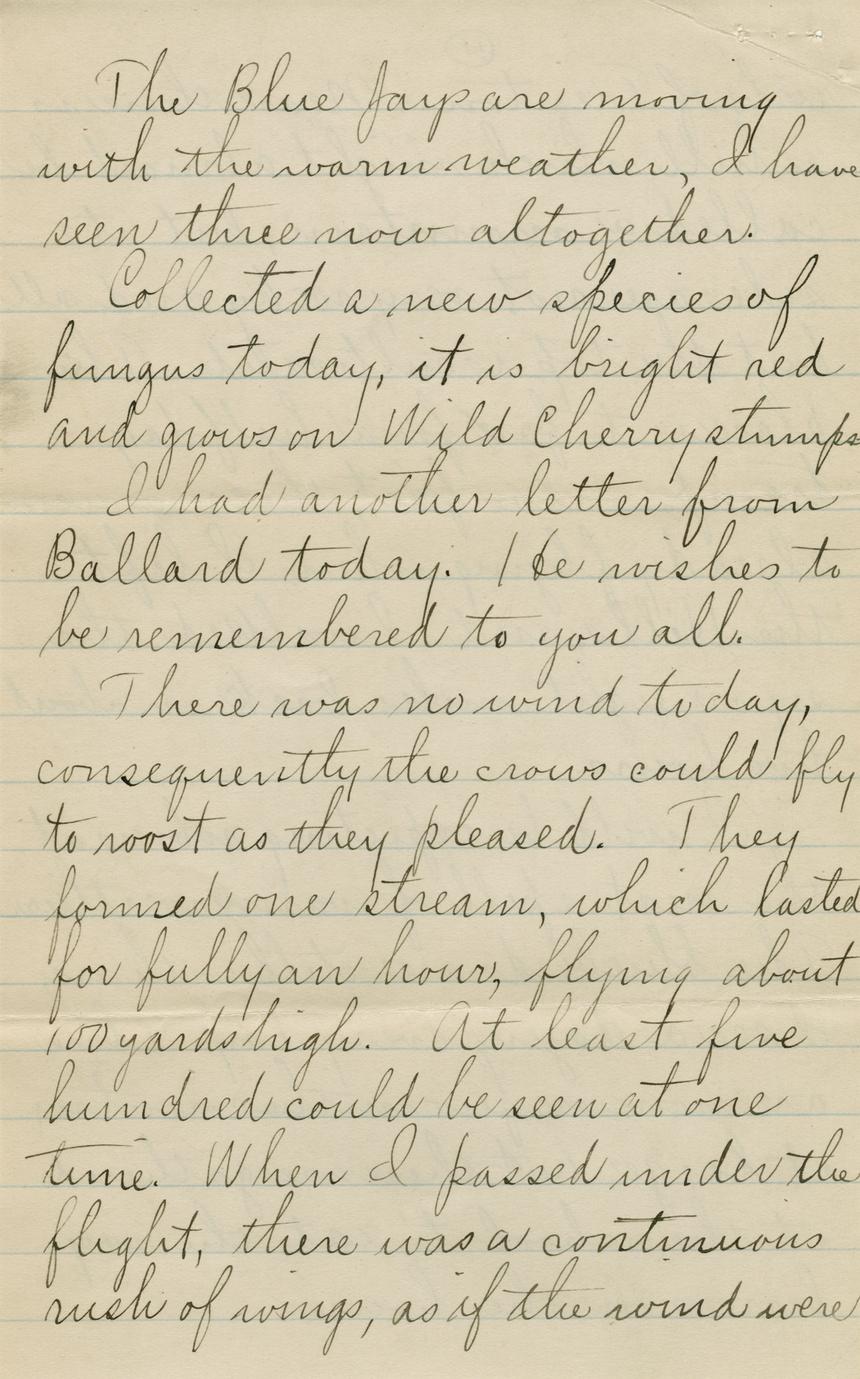 The Blue Jays are moving
with the warm weather, I have
seen three now altogether.
Collected a new species of
fungus today, it is bright red
and grows on Wild Cherry stumps
I had another letter from
Ballard today. He wishes to
be remembered to you all.
There was no wind today,
consequently the crows could fly
to roost as they pleased. They
formed one stream, which lasted
for fully an hour, flying about
100 yards high. At least five
hundred could be seen at one
time. When I passed under the
flight, there was a continuous
rush of wings, as if the wind were